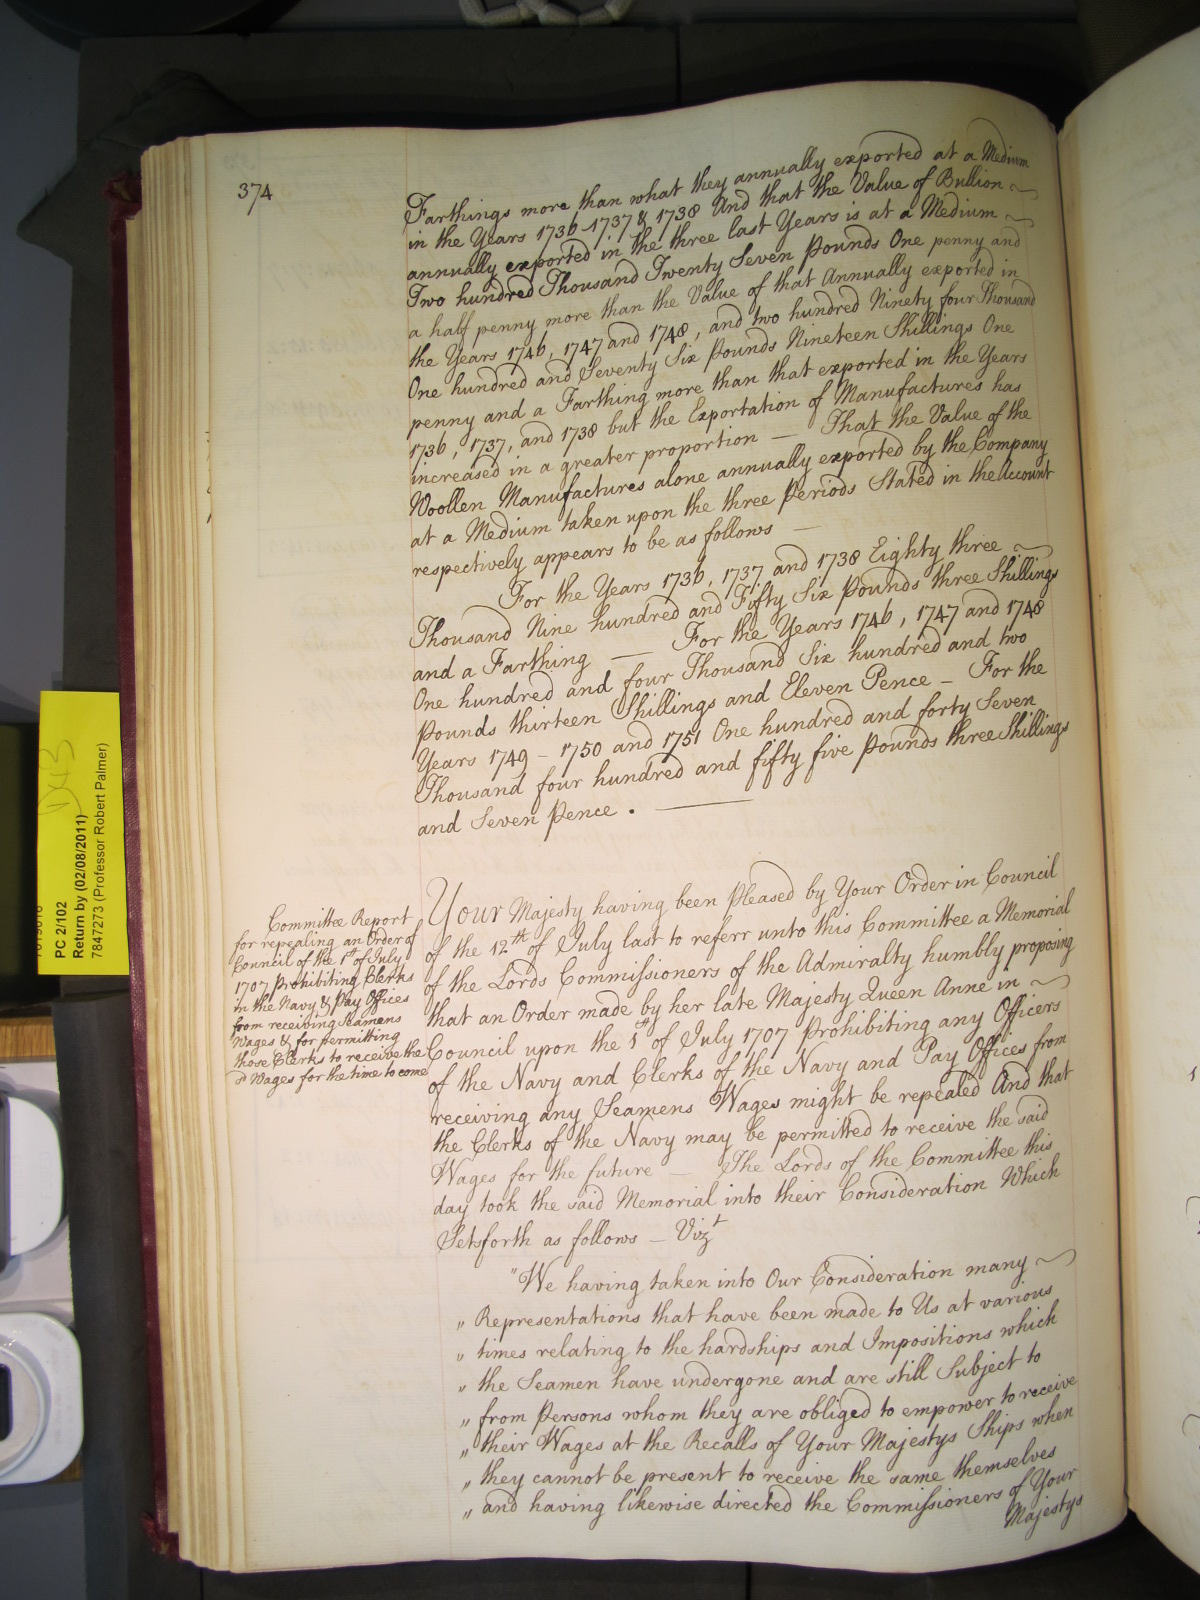 374
Farthings more than what they annually exported at a Medium
in the Years 1736 1737 & 1738 And that the Value of Bullion
annually exported in the three last Years is at a Medium
Two hundred Thousand Twenty Seven Pounds One penny and
a half penny more than the Value of that Annually exported in
the Years 1746, 1747 and 1748, and two hundred Ninety four Thousand
One hundred and Seventy Six Pounds Nineteen Shillings One
penny and a Farthing more than that exported in the Years
1736, 1737, and 1738 but the Exportation of Manufactures has
increased in a greater proportion — That the Value of the
Woollen Manufactures alone annually exported by the Company
at a Medium taken upon the three Periods Stated in the Account
respectively appears to be as follows —
For the Years 1736, 1737 and 1738 Eighty three
Thousand Nine hundred and Fifty Six Pounds three Shillings
and a Farthing — For the Years 1746, 1747 and 1748
One hundred and four Thousand Six hundred and two
Pounds thirteen Shillings and Eleven Pence — For the
Years 1749 - 1750 and 1751 One hundred and forty Seven
Thousand four hundred and fifty five Pounds three Shillings
and Seven Pence . —
Committee Report
for repealing an Order of
Council of the 1st of July
1707 Prohibiting Clerks
in the Navy & Pay Offices
from receiving Seamens
Wages & for permitting
those Clerks to receive the
sd Wages for the time to come
Your Majesty having been Pleased by Your Order in Council
of the 12th of July last to referr unto this Committee a Memorial
of the Lords Commissioners of the Admiralty humbly proposing
that an Order made by her late Majesty Queen Anne in
Council upon the 1st of July 1707 Prohibiting any Officers
of the Navy and Clerks of the Navy and Pay Offices from
receiving any Seamens Wages might be repealed And that
the Clerks of the Navy may be permitted to receive the said
Wages for the future — The Lords of the Committee this
day took the said Memorial into their Consideration Which
Setsforth as follows — Vizt
"We having taken into Our Consideration many
" Representations that have been made to Us at various
" times relating to the hardships and Impositions which
" the Seamen have undergone and are still Subject to
" from Persons whom they are obliged to empower to receive
" their Wages at the Recalls of Your Majestys Ships when
" they cannot be present to receive the same themselves
" and having likewise directed the Commissioners of Your
Majestys
PC 2/102
Return by (02/08/2011)
7847273 (Professor Robert Palmer)